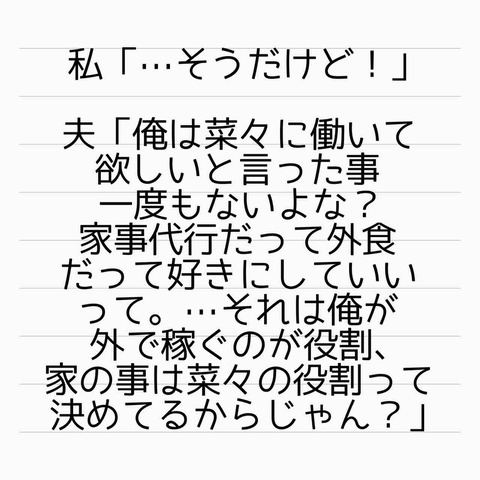 私「…そうだけど！」
夫「俺は菜々に働いて
欲しいと言った事
一度もないよな？
家事代行だって外食
だって好きにしていい
って。…それは俺が
外で稼ぐのが役割、
家の事は菜々の役割って
決めてるからじゃん？」